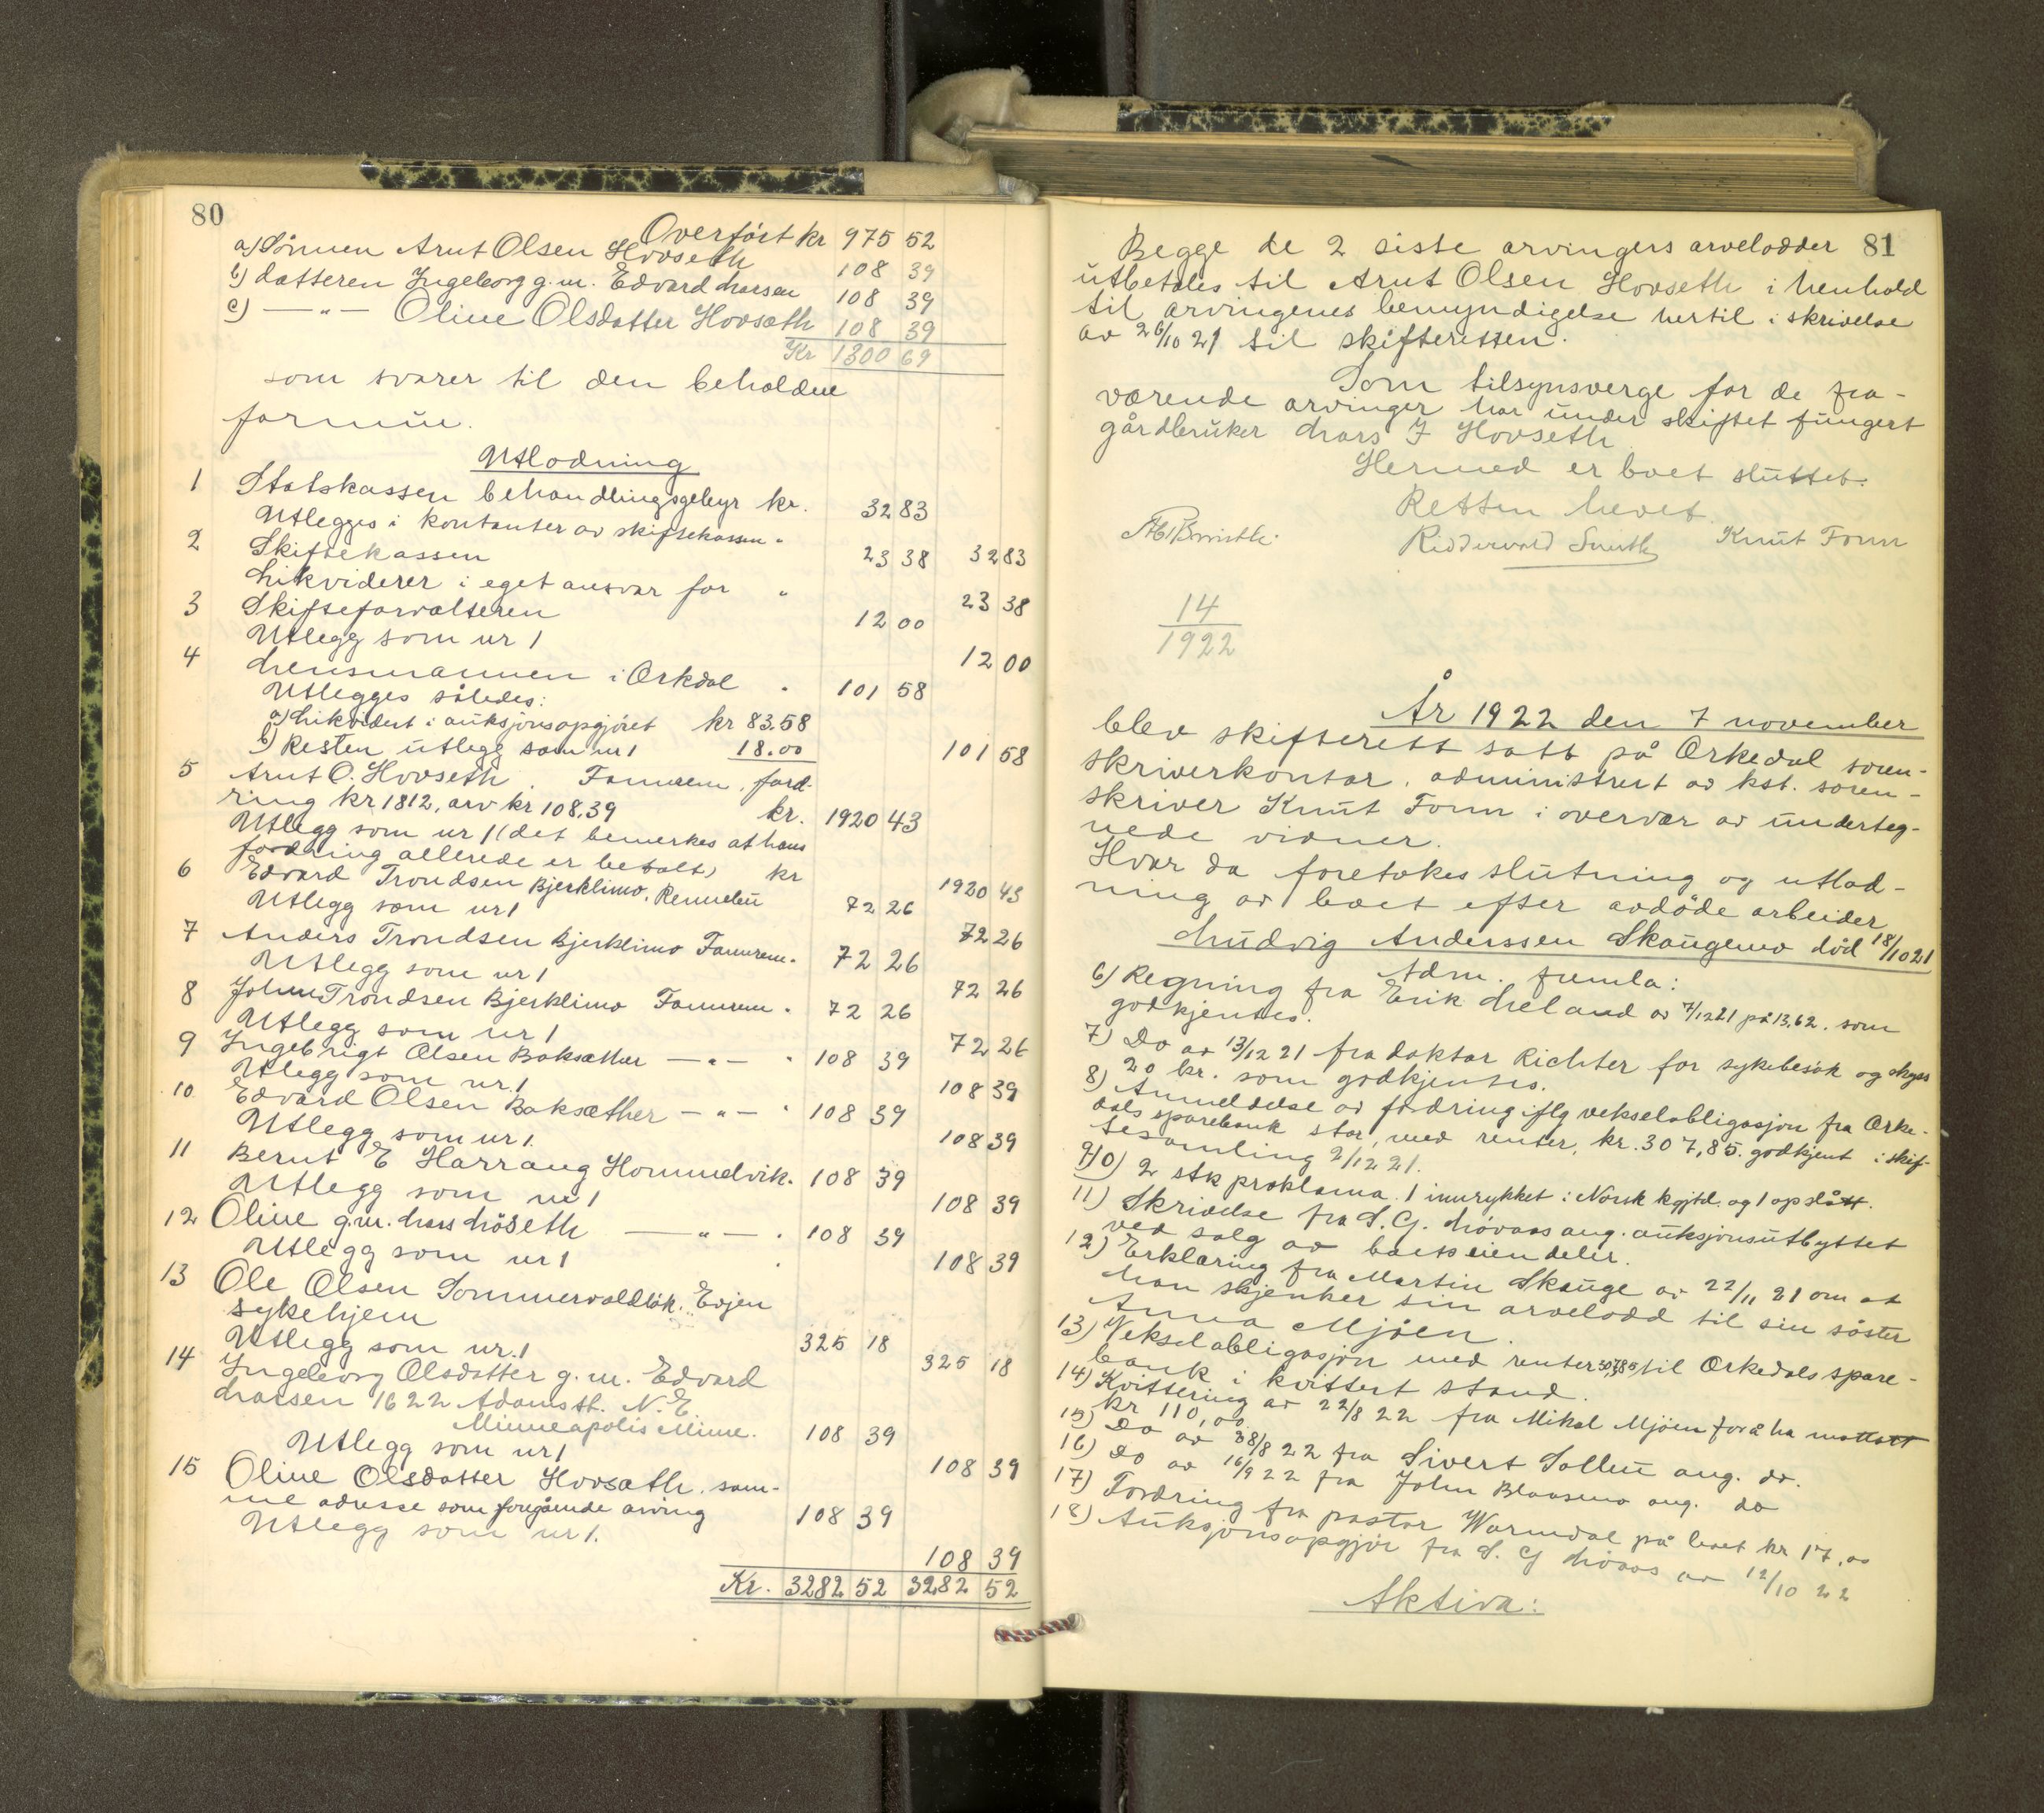 80
Overført kr 975 52
a) Sönnen Arnt Olsen Hovseth 108 39
b) datteren Ingeborg g.m. Edvard Larsen 108 39
c) — " — Oline Olsdatter Hovsæth 108 39
Kr 1300 69
som svarer til den beholdne
formue.
Utlodning
1 Statskassen behandlingsgebyr kr. 32 83
Utlegges i kontanter av skiftekassen " 32 83
2 Skiftekassen 23 38
Likviderer i eget ansvar for " 23 38
3 Skifteforvalteren 12 00
Utlegg som nr 1 12 00
4 Lensmannen i Orkdal " 101 58
Utlegges således:
a) Likvidert i auksjonsopgjöret kr 83.58
b) Resten utlegg som nr 1 18.00 101 58
5 Arnt O. Hovseth, Fannrem, ford-
ring kr 1812, arv kr 108,39 kr. 1920 43
Utlegg som nr 1 (det bemerkes at hans
fordring allerede er betalt) kr 1920 43
6 Edvard Trondsen Bjerklimo, Rennebu 72 26
Utlegg som nr 1 72 26
7 Anders Trondsen Bjerklimo Fannrem " 72 26
Utlegg som nr 1 72 26
8 John Trondsen Bjerklimo Fannrem " 72 26
Utlegg som nr 1 72 26
9 Ingebrigt Olsen Baksæther — " — " 108 39
Utlegg som nr. 1 108 39
10 Edvard Olsen Baksæther — " — " 108 39
Utlegg som nr 1. 108 39
11 Bernt E Harrang Hommelvik. 108 39
Utlegg som nr 1 108 39
12 Oline g.m. Lars Löseth — " — . 108 39
Utlegg som nr 1 108 39
13 Ole Olsen Sommervoldløk. Evjen
sykehjem 325 18
Utlegg som nr. 1 325 18
14 Ingeborg Olsdatter g.m. Edvard
Larsen 1622 Adams st. N.E.
Minneapolis Minn. 108 39
Utlegg som nr 1 108 39
15 Oline Olsdatter Hovsæth. sam-
me adresse som foregående arving 108 39
Utlegg som nr 1. 108 39
Kr. 3282 52 3282 52
81
Begge de 2 siste arvingers arvelodder
utbetales til Arnt Olsen Hovseth i henhold
til arvingenes bemyndigelse hertil i skrivelse
av 26/10 21 til skifteretten.
Som tilsynsverge for de fra-
værende arvinger har under skiftet fungert
gårdbruker Lars J Hovseth
Hermed er boet sluttet.
Retten hevet.
Riddervold Smith Knut Fonn
14
1922
År 1922 den 7 november
blev skifterett satt på Orkedal soren-
skriverkontor, administrert av kst. soren-
skriver Knut Fonn i overvær av underteg-
nede vidner.
Hvor da foretokes slutning og utlod-
ning av boet efter avdöde arbeider
Ludvig Anderssen Skaugemo död 18/10 21
Adm. fremla:
6) Regning fra Erik Meland av 7/12 21 på 13,62. som
godkjentes.
7) Do av 13/12 21 fra doktor Richter for sykebesök og skyss
20 kr. som godkjentes.
8) Anmeldelse av fordring iflg vekselobligasjon fra Orke-
dals sparebank stor, med renter, kr. 307,85. godkjent i skif-
tesamling 2/12 21.
9/10) 2 stk proklama. 1 innrykket i Norsk kgjtd. og 1 opslått.
11) Skrivelse fra S. G. Lövaas ang. auksjonsutbyttet
ved salg av boets eiendeler.
12) Erklæring fra Martin Skauge av 22/11 21 om at
han skjenker sin arvelodd til sin söster
Anna Mjöen.
13) Vekselobligasjon med renter 307,85, til Orkedals spare-
bank i kvittert stand.
14) Kvittering av 22/8 22 fra Mikal Mjöen for å ha mottatt
kr 110,00.
15) Do av 28/8 22 fra Sivert Solleu ang. do.
16) Do av 16/9 22 fra John Blaasmo ang. do
17) Fordring fra pastor Warmdal på boet kr 17,00
18) Auksjonsopgjör fra S. G Lövaas av 12/10 22
Aktiva: